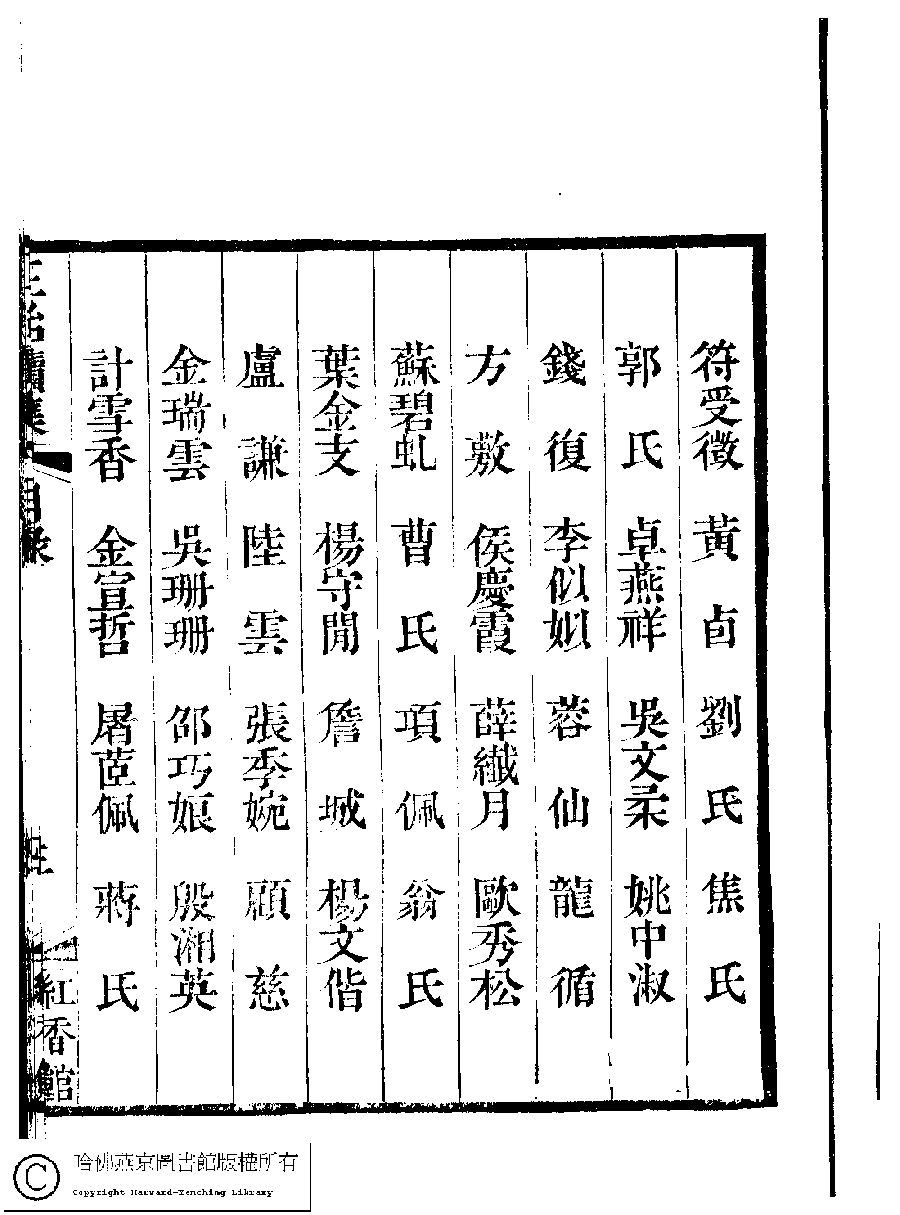 符受徵 黃卣 劉氏 焦氏
郭氏 卓燕祥 吳文柔 姚中淑
錢復 李似姒 蓉仙 龍循
方敷 侯慶霞 薛纎月 歐秀松
蘇碧虬 曹氏 項佩 翁氏
葉金支 楊守閒 詹城 楊文偕
盧謙 陸雲 張季婉 顧慈
金瑞雲 吳珊珊 邵巧娘 殷湘英
計雪香 金宣哲 屠茝佩 蔣氏
續集 目錄 紅香館
哈佛燕京圖書館版權所有
Copyright Harvard-Yenching Library